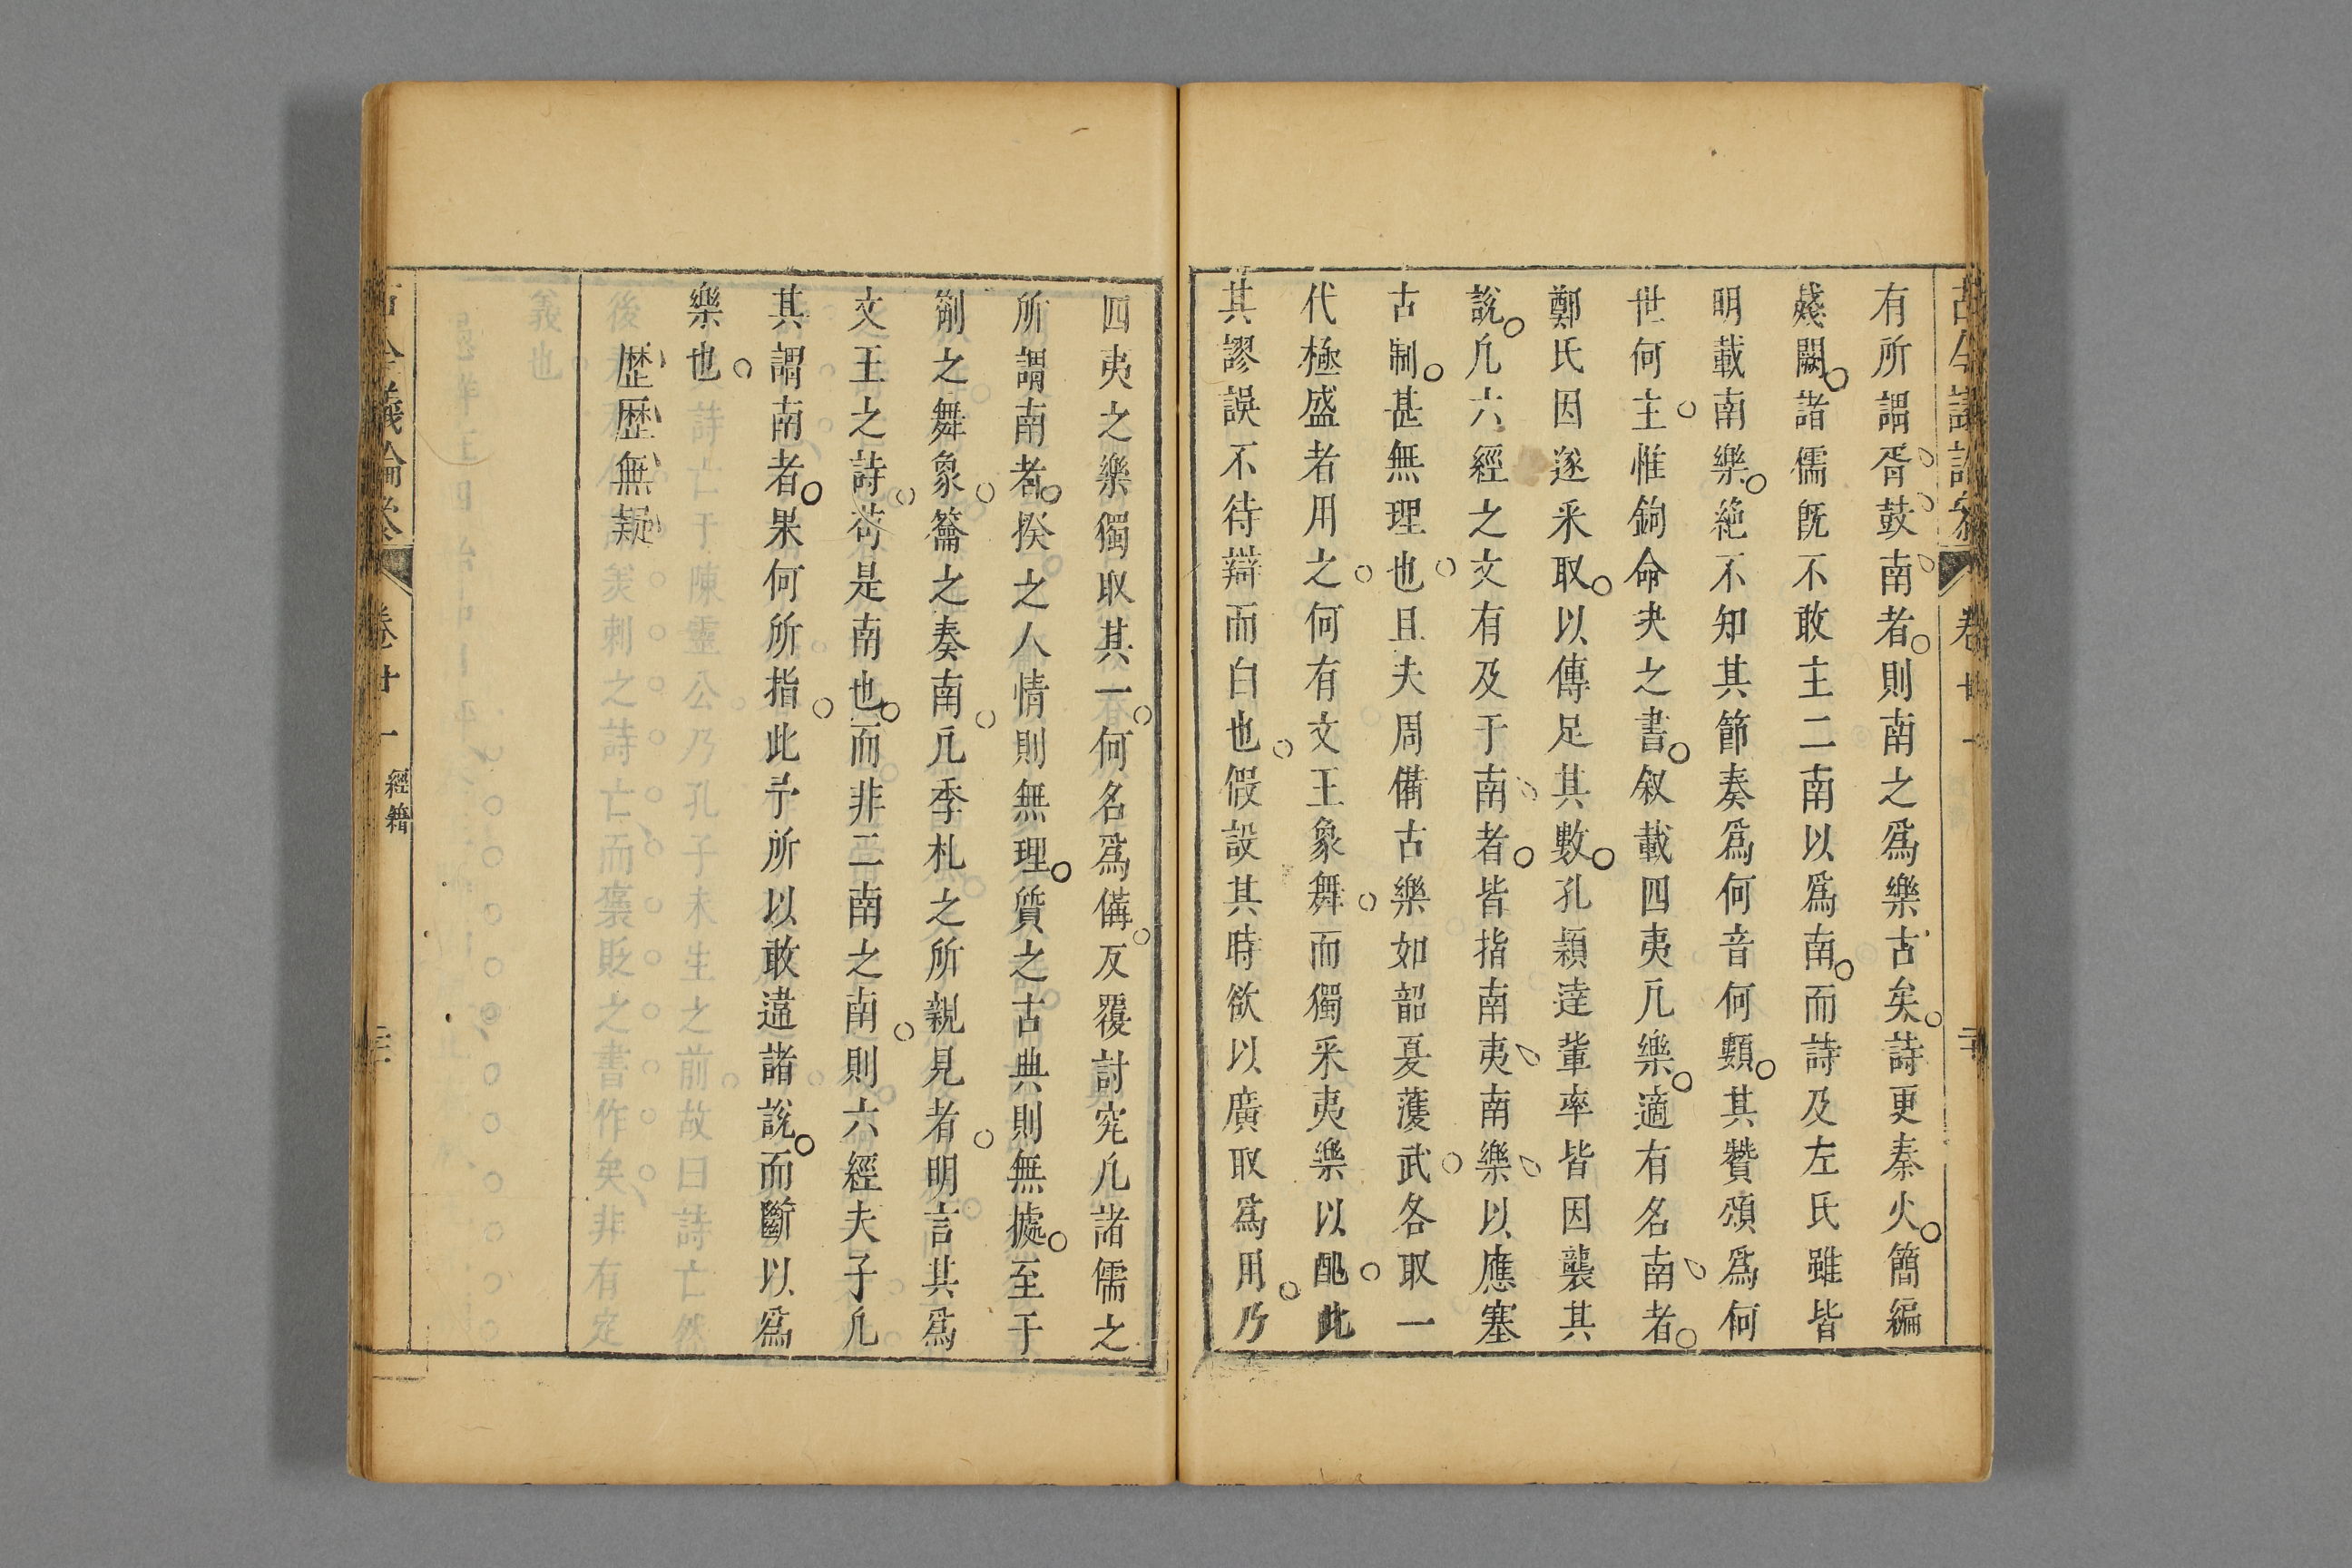 有所謂胥鼓南者則南之爲樂古矣詩更秦火簡編
殘闕諸儒旣不敢主二南以爲南而詩及左氏雖皆
明載南樂絶不知其節奏爲何音何類其贊頌爲何
世何主惟鉤命決之書叙載四夷凡樂適有名南者
鄭氏因遂采取以傳足其數孔穎逹軰率皆因襲其
說凡六經之文有及于南者皆指南夷南樂以應塞
古制甚無理也且夫周備古樂如韶夏濩武各取一
代極盛者用之何有文王象舞而獨采夷樂以配此
其謬誤不待辯而白也假設其時欲以廣取爲用乃
四夷之樂獨取其一何名爲備反覆討究凡諸儒之
所謂南者揆之人情則無理質之古典則無據至于
劄之舞象籥之奏南凡季札之所親見者明言其爲
文王之詩苟是南也而非二南之南則六經夫子凡
其謂南者果何所指此予所以敢違諸說而斷以爲
樂也
歷歷無疑
卷廿一
經籍